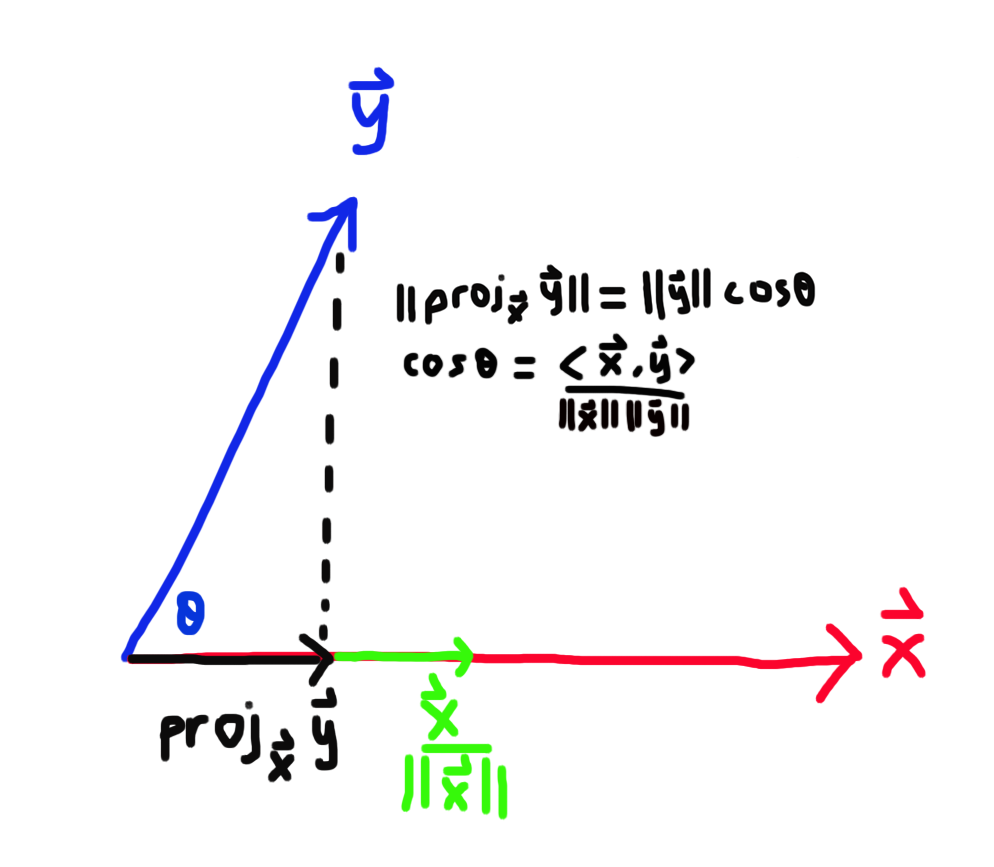 $\vec{y}$
$\|\text{proj}_{\vec{x}}\, \vec{y}\| = \|\vec{y}\| \cos\theta$
$\cos\theta = \frac{\langle \vec{x}, \vec{y} \rangle}{\|\vec{x}\| \|\vec{y}\|}$
$\theta$
$\vec{x}$
$\text{proj}_{\vec{x}}\, \vec{y}$
$\frac{\vec{x}}{\|\vec{x}\|}$